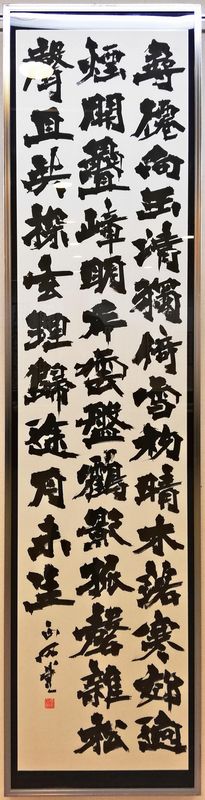 尋僊向玉清獨倚雪初晴木落寒郊迥
煙開疊嶂明片雲盤鶴影孤磬雜松
聲且共探玄理歸途月未生